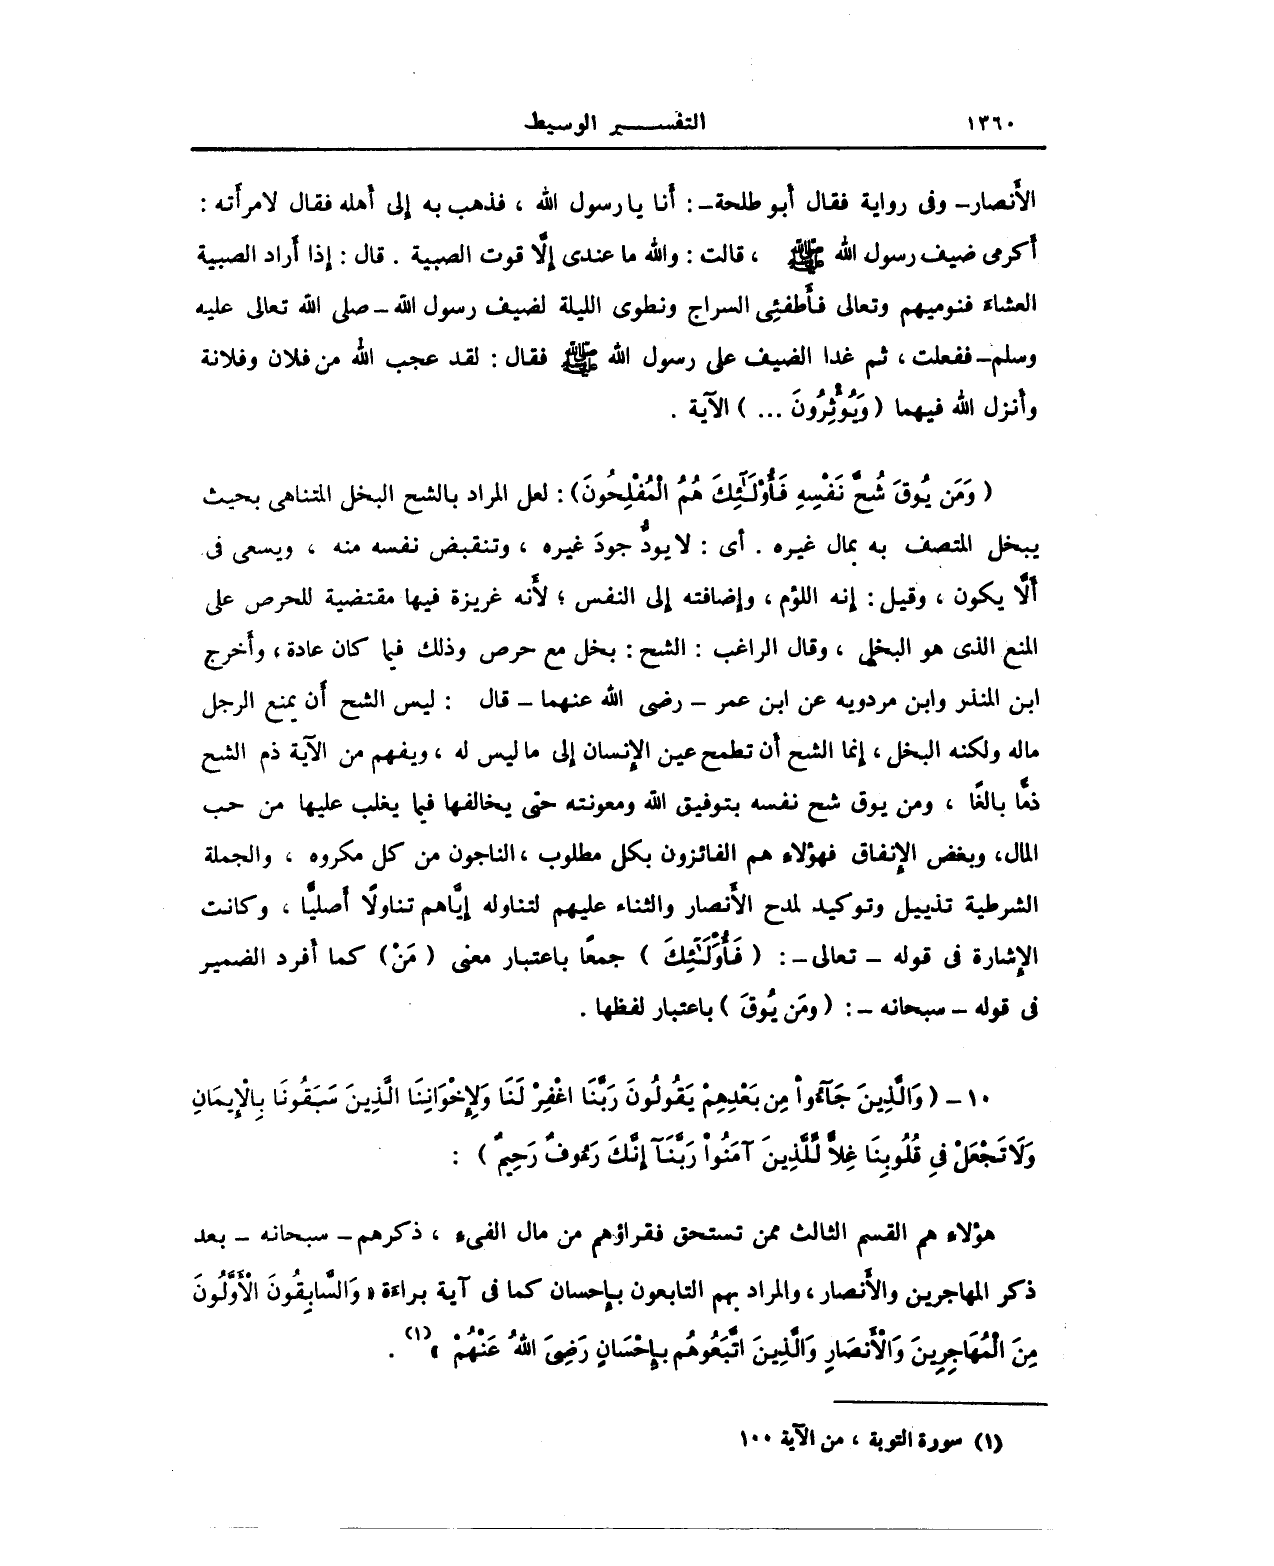 ١٣٦٠ التفسير الوسيط
الأنصار - وفى رواية فقال أبو طلحة - : أنا يا رسول الله ، فذهب به إلى أهله فقال لامرأته :
أكرمى ضيف رسول الله ﷺ ، قالت : والله ما عندى إلَّا قوت الصبية . قال : إذا أراد الصبية
العشاء فنوميهم وتعالى فأطفئِى السراج ونطوى الليلة لضيف رسول الله - صلى الله تعالى عليه
وسلم - ففعلت ، ثم غدا الضيف على رسول الله ﷺ فقال : لقد عجب الله من فلان وفلانة
وأنزل الله فيهما ( وَيُؤْثِرُونَ ... ) الآية .
( وَمَن يُوقَ شُحَّ نَفْسِهِ فَأُوْلَـٰٓئِكَ هُمُ الْمُفْلِحُونَ ) : لعل المراد بالشح البخل المتناهى بحيث
يبخل المتصف به بمال غيره . أى : لا يودُّ جودَ غيره ، وتنقبض نفسه منه ، ويسعى فى
ألَّا يكون ، وقيل : إنه اللؤم ، وإضافته إلى النفس ؛ لأنه غريزة فيها مقتضية للحرص على
المنع الذى هو البخل ، وقال الراغب : الشح : بخل مع حرص وذلك فيما كان عادة ، وأخرج
ابن المنذر وابن مردويه عن ابن عمر - رضى الله عنهما - قال : ليس الشح أن يمنع الرجل
ماله ولكنه البخل ، إنما الشح أن تطمح عين الإنسان إلى ما ليس له ، ويفهم من الآية ذم الشح
ذمًّا بالغًا ، ومن يوق شح نفسه بتوفيق الله ومعونته حتى يخالفها فيما يغلب عليها من حب
المال ، وبغض الإنفاق فهؤلاء هم الفائزون بكل مطلوب ، الناجون من كل مكروه ، والجملة
الشرطية تذييل وتوكيد لمدح الأنصار والثناء عليهم لتناوله إيَّاهم تناولًا أصليًّا ، وكانت
الإشارة فى قوله - تعالى - : ( فَأُوْلَـٰٓئِكَ ) جمعًا باعتبار معنى ( مَنْ ) كما أفرد الضمير
فى قوله - سبحانه - : ( ومَن يُوقَ ) باعتبار لفظها .
١٠ - ( وَالَّذِينَ جَآءُواْ مِن بَعْدِهِمْ يَقُولُونَ رَبَّنَا اغْفِرْ لَنَا وَلِإِخْوَانِنَا الَّذِينَ سَبَقُونَا بِالْإِيمَانِ
وَلَا تَجْعَلْ فِى قُلُوبِنَا غِلاًّ لِّلَّذِينَ آمَنُواْ رَبَّنَآ إِنَّكَ رَءُوفٌ رَحِيمٌ ) :
هؤلاء هم القسم الثالث ممن تستحق فقراؤهم من مال الفىء ، ذكرهم - سبحانه - بعد
ذكر المهاجرين والأنصار ، والمراد بهم التابعون بإحسان كما فى آية براءة « وَالسَّابِقُونَ الْأَوَّلُونَ
مِنَ الْمُهَاجِرِينَ وَالْأَنصَارِ وَالَّذِينَ اتَّبَعُوهُم بِإِحْسَانٍ رَضِىَ اللهُ عَنْهُمْ »(١) .
(١) سورة التوبة ، من الآية ١٠٠